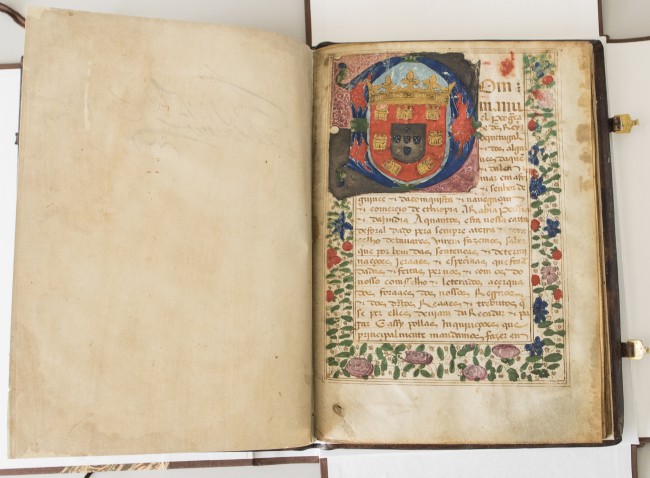 Dom :
manu
el per gra
de ds Rey
de purtugal
& dos algar
ues daque
& dalem
mar em afri
& senhor de
guinee & daconquista & nauegaçam
& comercio de ethiopia Arabia Persia
& da india A quantos esta nossa carta
de foral dado pera sempre a terra & con
celho de buarcos virem fazemos saber
que por bem das sentenças & determi
naçoees Jeraaes & especiaaes que foram
dadas & feitas per nos & com os do
nosso comsselho & leterados acerqua
dos foraaes dos nossos Regnos
& dos dreitos Reaaes & tributos q̃
se per elles deuiam da Recadar & pa
gar E assy pollas Inquiriçoees que
principalmente mandamos fazer em